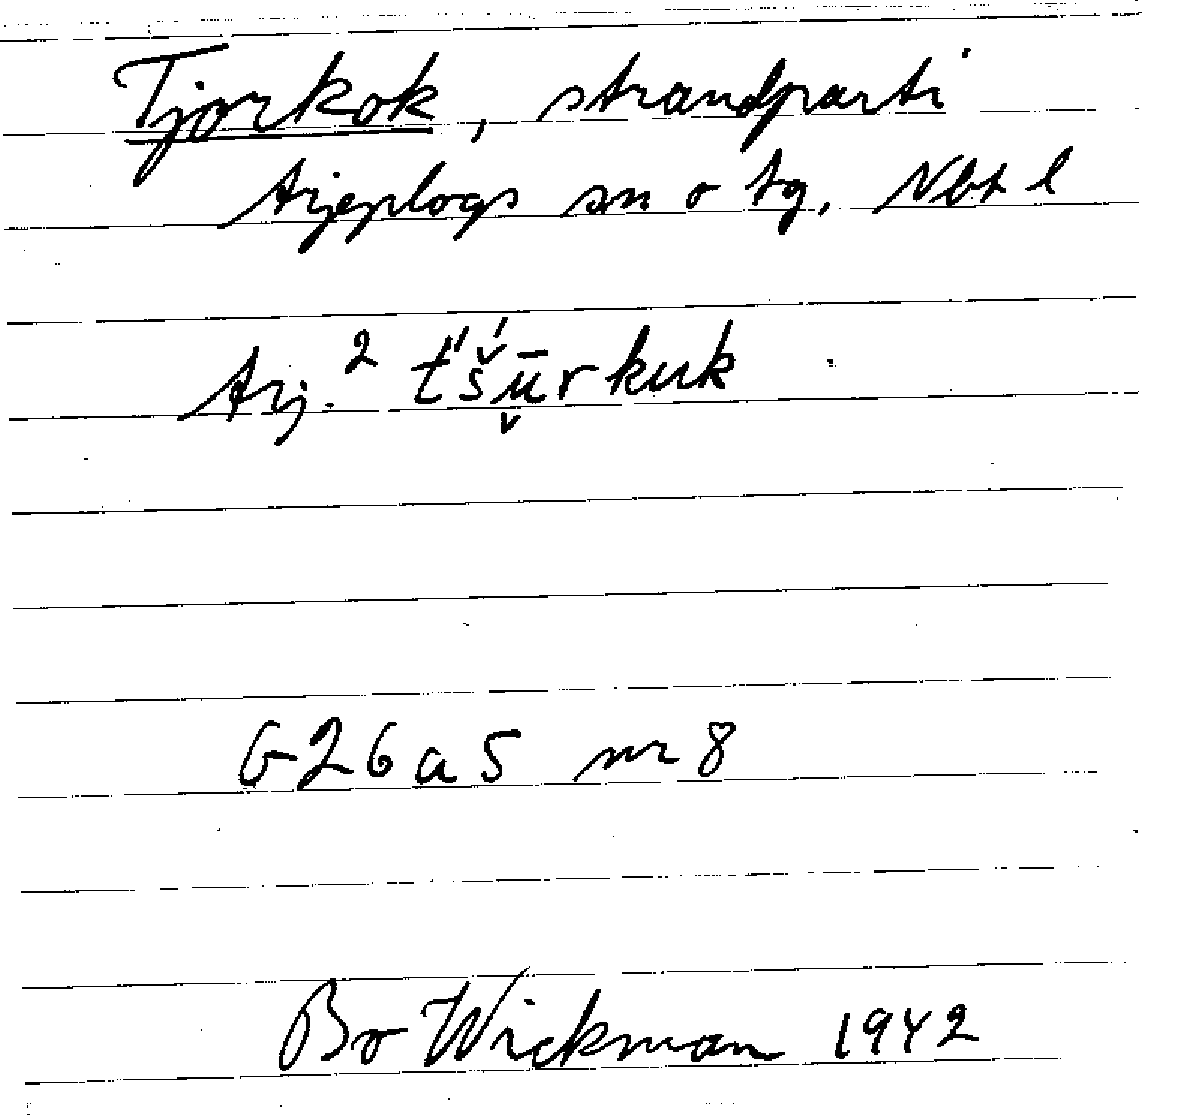 Tjorkok, strandparti
Arjeplogs sn o tg, Nbt l
Arj.² t́'š́ū̬rkuk
G26a5 nr 8
Bo Wickman 1942